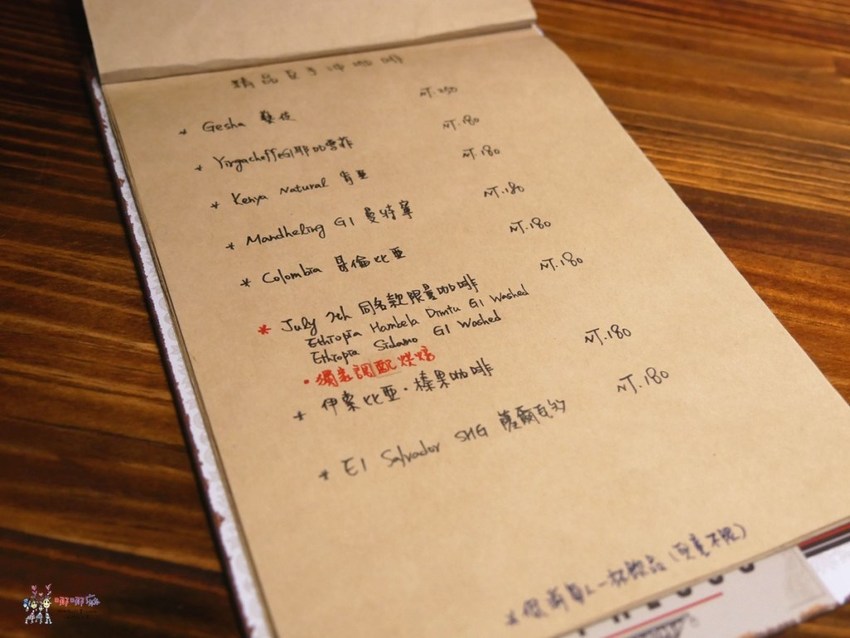 精品手沖咖啡
* Gesha 藝伎 NT.250
* Yirgacheffe G1 耶加雪菲 NT.180
* Kenya Natural 肯亞 NT.180
* Mandheling G1 曼特寧 NT.180
* Colombia 哥倫比亞 NT.180
* July 7th 同名款限量咖啡 NT.180
Ethiopia Hambela Dimtu G1 Washed
Ethiopia Sidamo G1 Washed
• 獨家調配烘焙
* 伊索比亞·榛果咖啡 NT.180
* El Salvador SHG 薩爾瓦多 NT.180
一杯飲品
啾啾麻